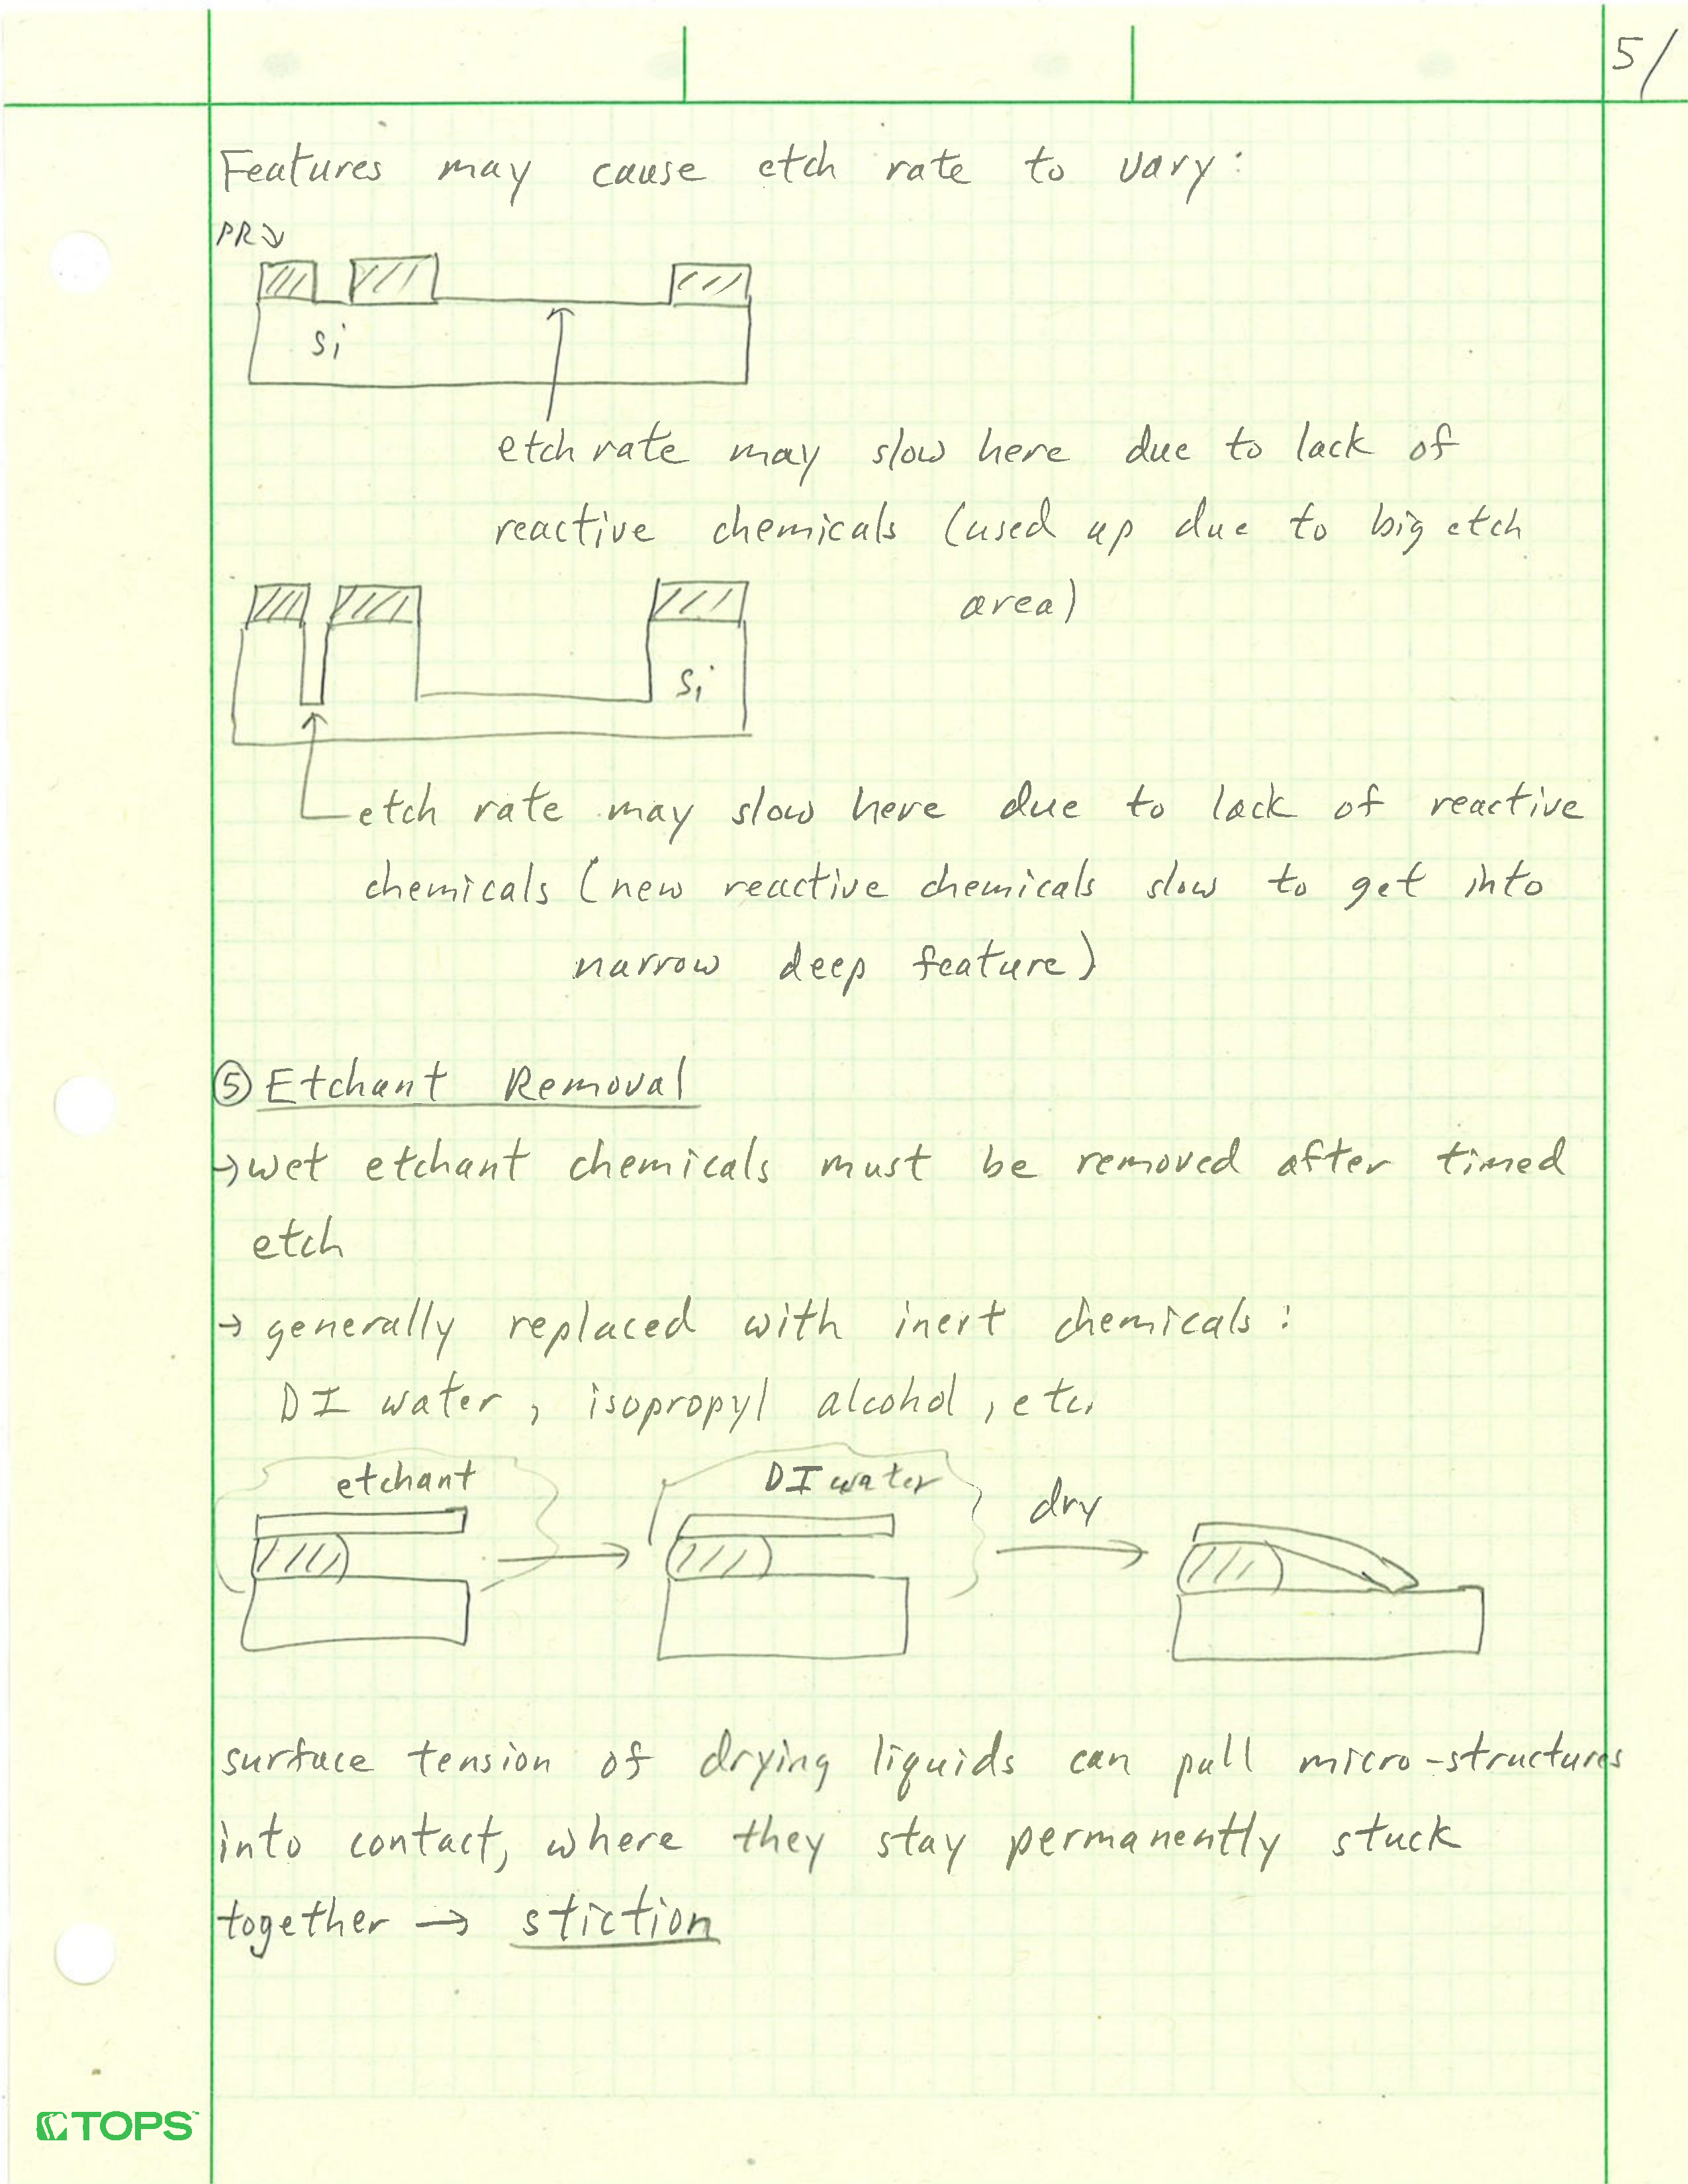 5/
Features may cause etch rate to vary:
PR
Si
etch rate may slow here due to lack of
reactive chemicals (used up due to big etch
area)
Si
etch rate may slow here due to lack of reactive
chemicals (new reactive chemicals slow to get into
narrow deep feature)
⑤ Etchant Removal
→ wet etchant chemicals must be removed after timed
etch
→ generally replaced with inert chemicals:
DI water, isopropyl alcohol, etc.
etchant
DI water
dry
surface tension of drying liquids can pull micro-structures
into contact, where they stay permanently stuck
together → stiction
TOPS™